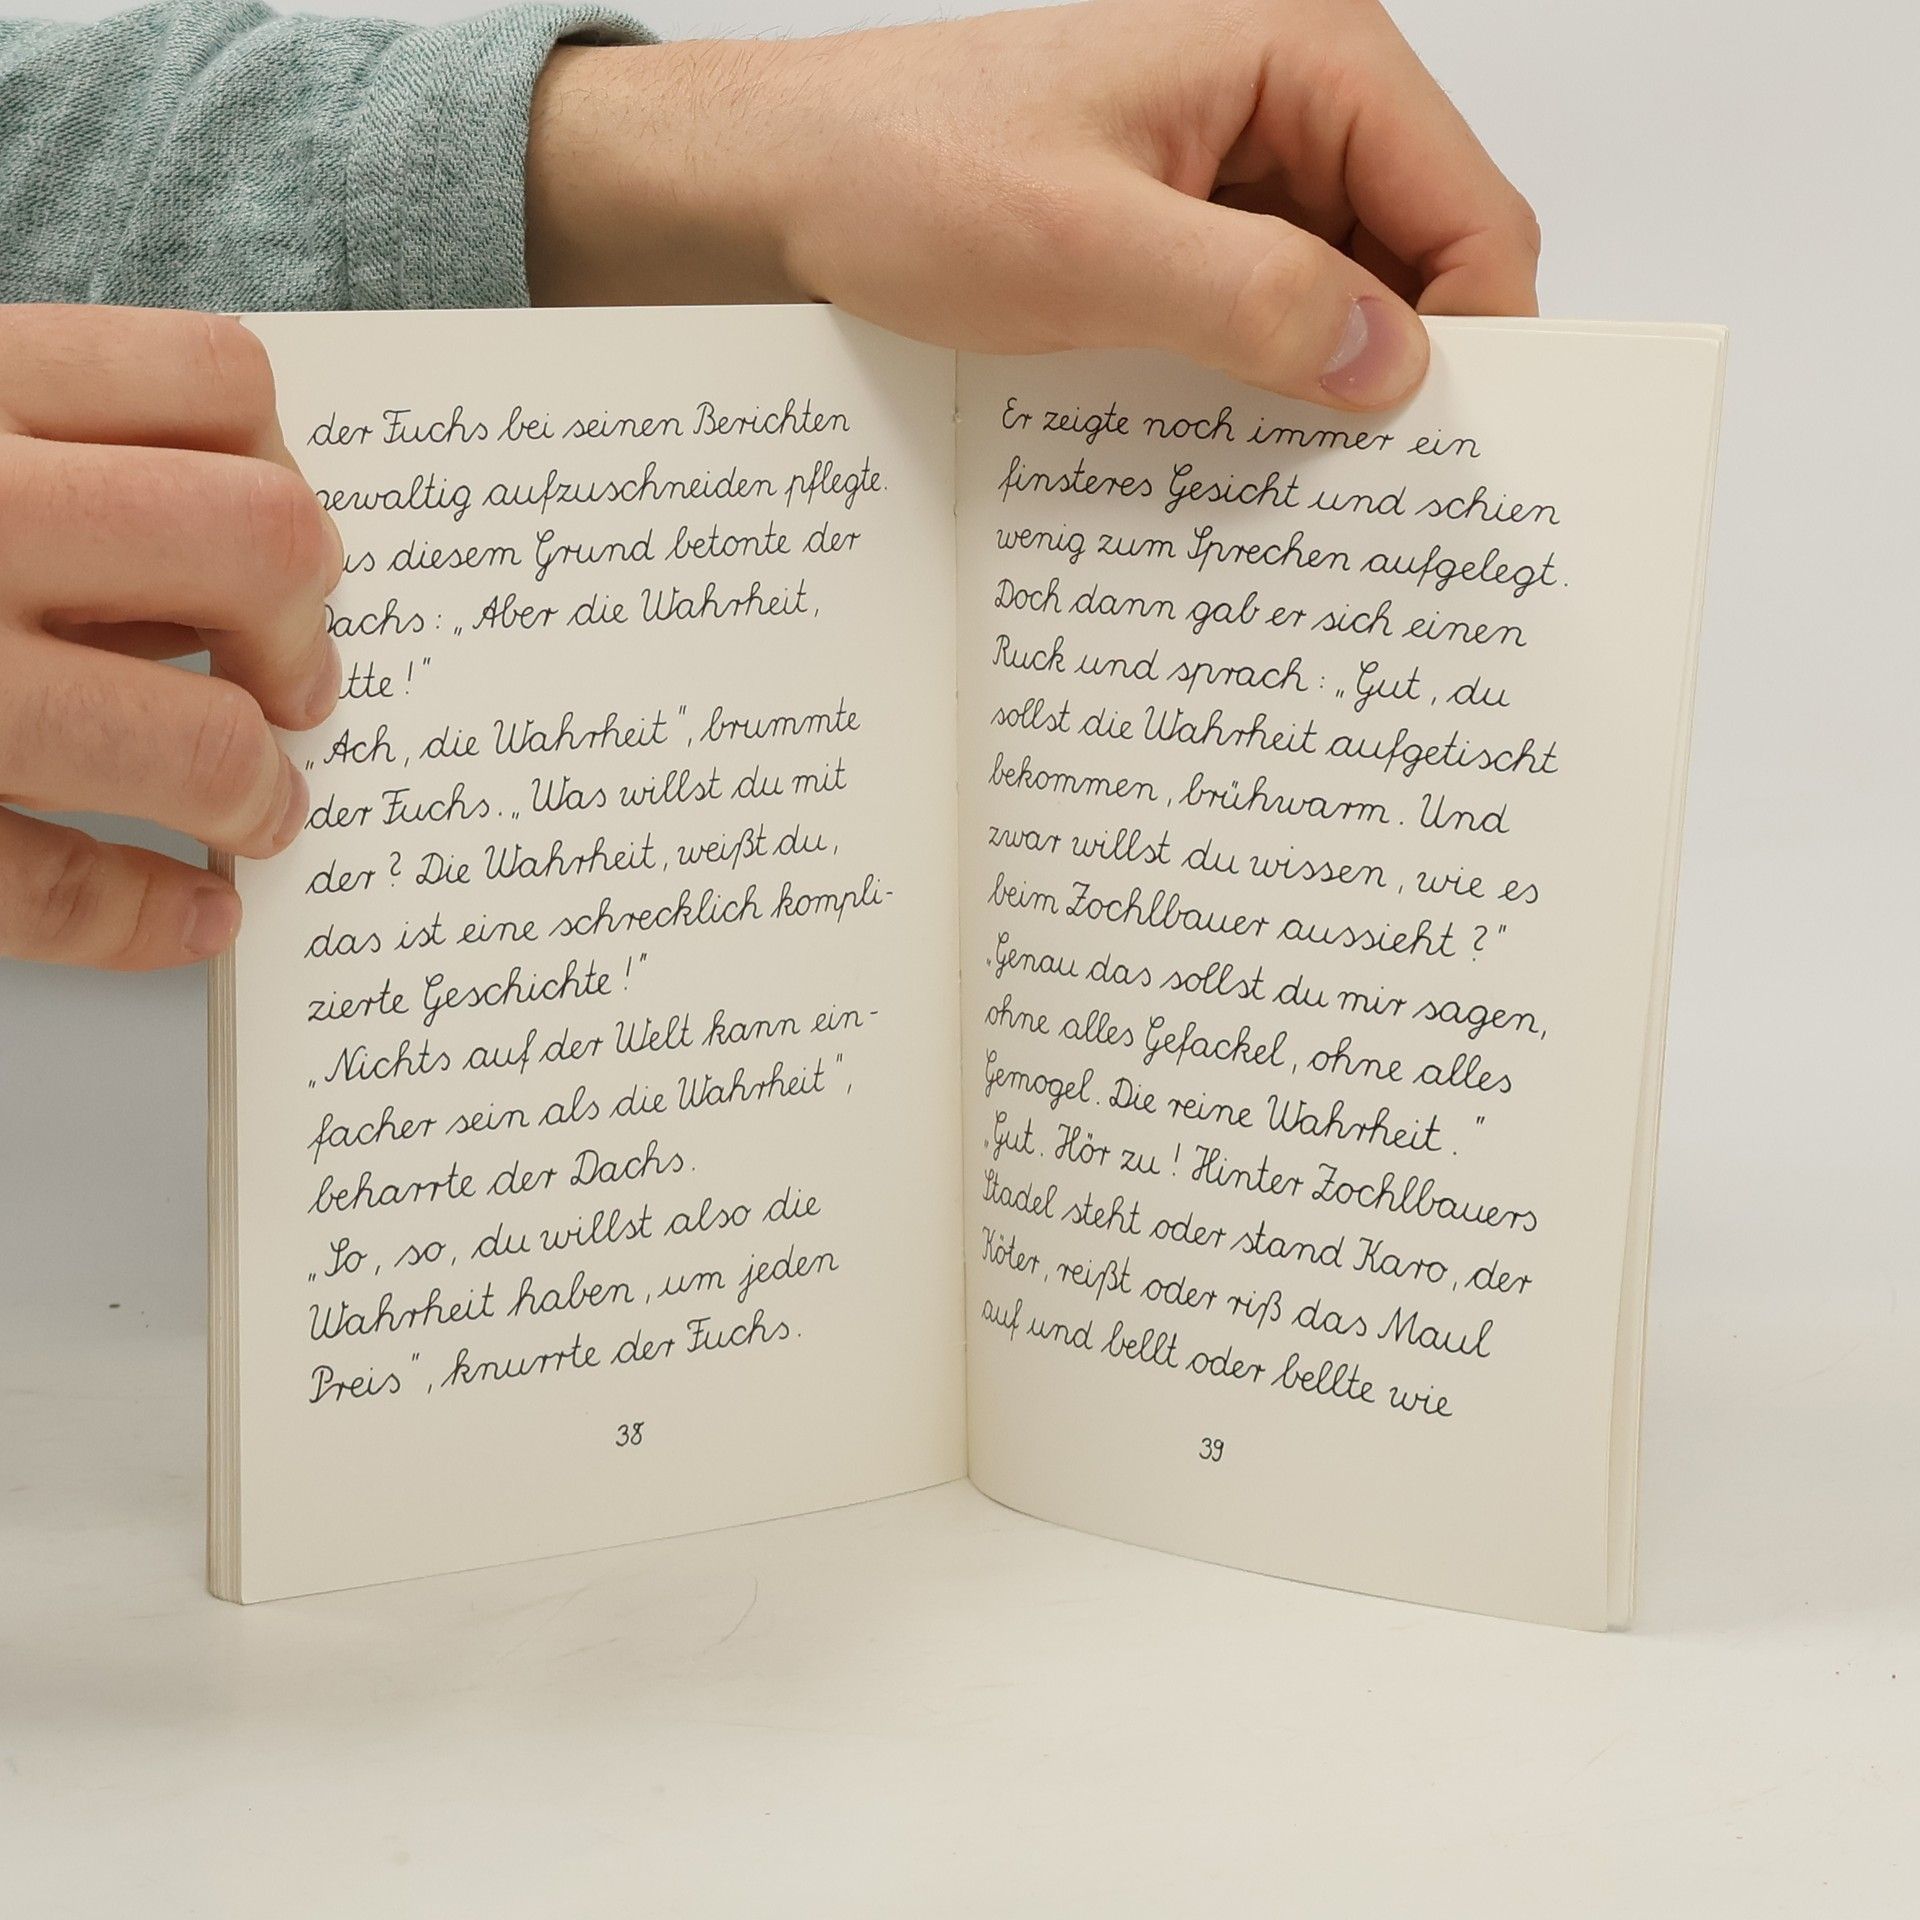 der Fuchs bei seinen Berichten
gewaltig aufzuschneiden pflegte.
us diesem Grund betonte der
Dachs: „Aber die Wahrheit,
tte!“
„Ach, die Wahrheit“, brummte
der Fuchs. „Was willst du mit
der? Die Wahrheit, weißt du,
das ist eine schrecklich kompli-
zierte Geschichte!“
„Nichts auf der Welt kann ein-
facher sein als die Wahrheit“,
beharrte der Dachs.
„So, so, du willst also die
Wahrheit haben, um jeden
Preis“, knurrte der Fuchs.
38
Er zeigte noch immer ein
finsteres Gesicht und schien
wenig zum Sprechen aufgelegt.
Doch dann gab er sich einen
Ruck und sprach: „Gut, du
sollst die Wahrheit aufgetischt
bekommen, brühwarm. Und
zwar willst du wissen, wie es
beim Zochlbauer aussieht?“
„Genau das sollst du mir sagen,
ohne alles Gefackel, ohne alles
Gemogel. Die reine Wahrheit.“
„Gut. Hör zu! Hinter Zochlbauers
Stadel steht oder stand Karo, der
Köter, reißt oder riß das Maul
auf und bellt oder bellte wie
39